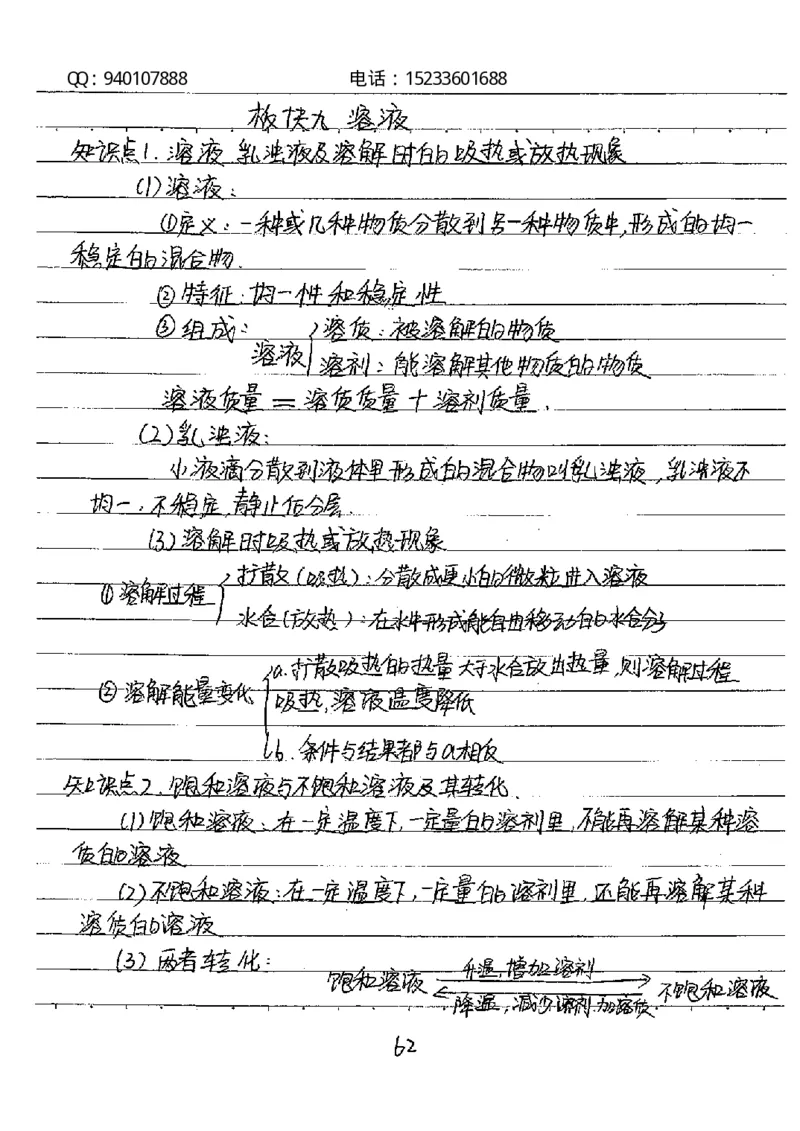 QQ：940107888 电话：15233601688
板块九 溶液
知识点1. 溶液、乳浊液及溶解时的吸热或放热现象
(1)溶液：
①定义：一种或几种物质分散到另一种物质中,形成的均一
稳定的混合物.
②特征：均一性和稳定性
③组成：
溶液
溶质：被溶解的物质
溶剂：能溶解其他物质的物质
溶液质量＝溶质质量＋溶剂质量.
(2)乳浊液：
小液滴分散到液体里形成的混合物叫乳浊液,乳浊液不
均一,不稳定,静止后分层.
(3)溶解时吸热或放热现象
①溶解过程
扩散(吸热)：分散成更小的微粒进入溶液
水合(放热)：在水中形成能自由移动的水合分子
②溶解能量变化
a.扩散吸热的热量大于水合放出热量,则溶解过程
吸热,溶液温度降低
b.条件与结果都与a相反
知识点2.饱和溶液与不饱和溶液及其转化.
(1)饱和溶液：在一定温度下,一定量的溶剂里,不能再溶解某种溶
质的溶液
(2)不饱和溶液：在一定温度下,一定量的溶剂里,还能再溶解某种
溶质的溶液
(3)两者转化：
饱和溶液 升温,增加溶剂 不饱和溶液
降温,减少溶剂,加溶质.
62